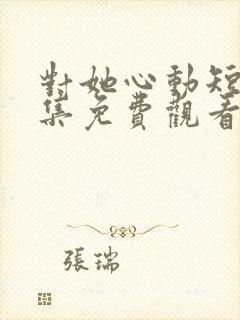 對她心動短
集免費觀看
張瑞